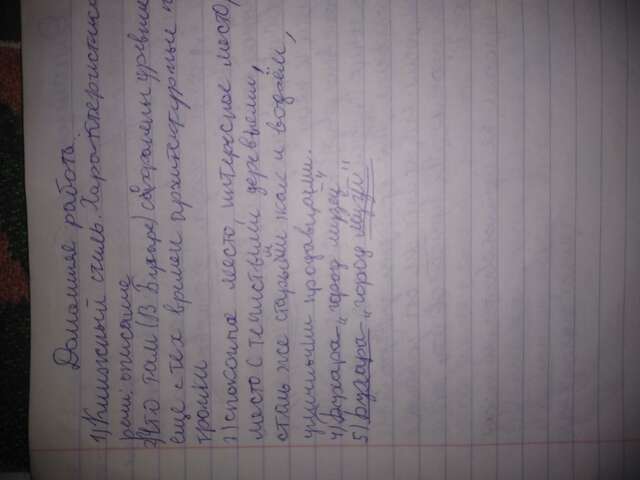 Домашняя работа.
1) Книжный стиль. Характеристики
речи: описание
2) Что там (В Бухаре) сохранены древние
ещё с тех времён архитектурные
тройки
3) спокойное место, интересное место,
место с тенистыми деревьями,
столь же старыми как и водоём,
уличными продавцами.
4) Бухара - "город музей"
5) Бухара - "город музей"